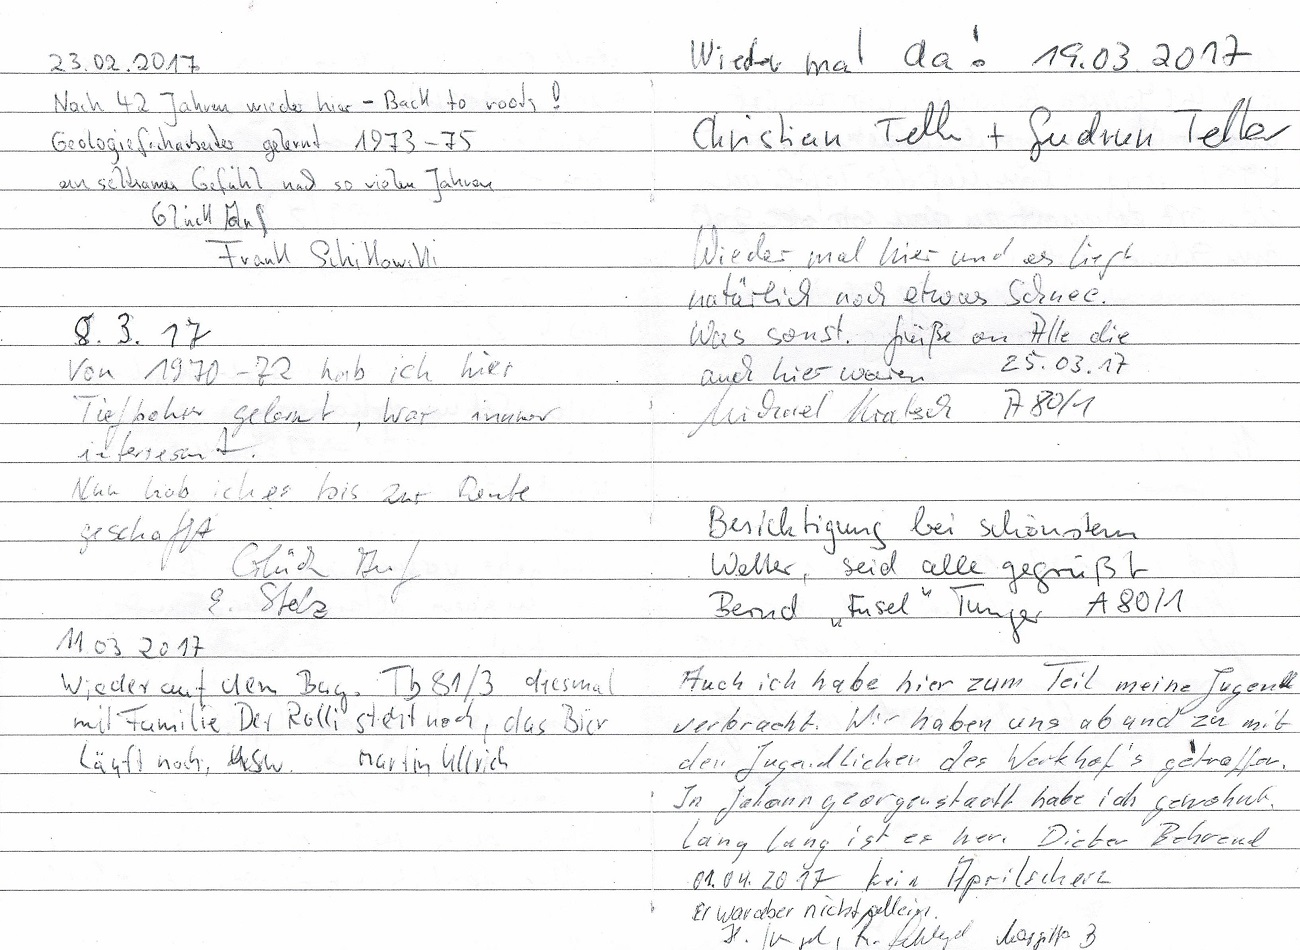 23.02.2017
Nach 42 Jahren wieder hier – Back to roots!
Geologiefacharbeiter gelernt 1973–75
ein seltsames Gefühl nach so vielen Jahren
Glück Auf
Frank
8. 3. 17
Von 1970–72 hab ich hier
Tiefbohrer gelernt, war immer
interesant.
Nun hab ich es bis zur Rente
geschafft
Glück Auf
E. Stelz
11.03 2017
Wieder auf dem Bag. Tb 81/3 diesmal
mit Familie Der Rolli steht noch, das Bier
läuft noch, usw. Martin Ullrich
Wieder mal da! 19.03.2017
Christian Teller + Gudrun Teller
Wieder mal hier und es liegt
natürlich noch etwas Schnee.
Was sonst. Grüße an Alle die
auch hier waren 25.03.17
Michael Kratsch A 80/1
Besichtigung bei schönstem
Wetter, seid alle gegrüßt
Bernd „Fusel" Tunger A 80/1
Auch ich habe hier zum Teil meine Jugend
verbracht. Wir haben uns ab und zu mit
den Jugendlichen des Werkhof's getroffen.
In Johanngeorgenstadt habe ich gewohnt.
Lang lang ist es her. Dieter Behrend
01.04.2017 kein Aprilscherz
Er war aber nicht allein.